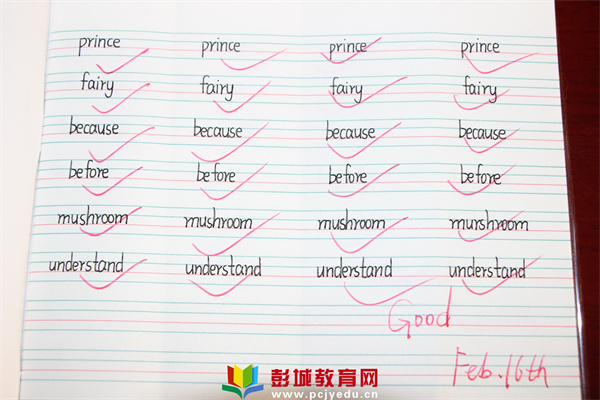 prince prince prince prince
fairy fairy fairy fairy
because because because because
before before before before
mushroom mushroom mushroom murshroom
understand understand understand understand
Good
Feb. 16th
彭城教育网
www.pcjyedu.cn